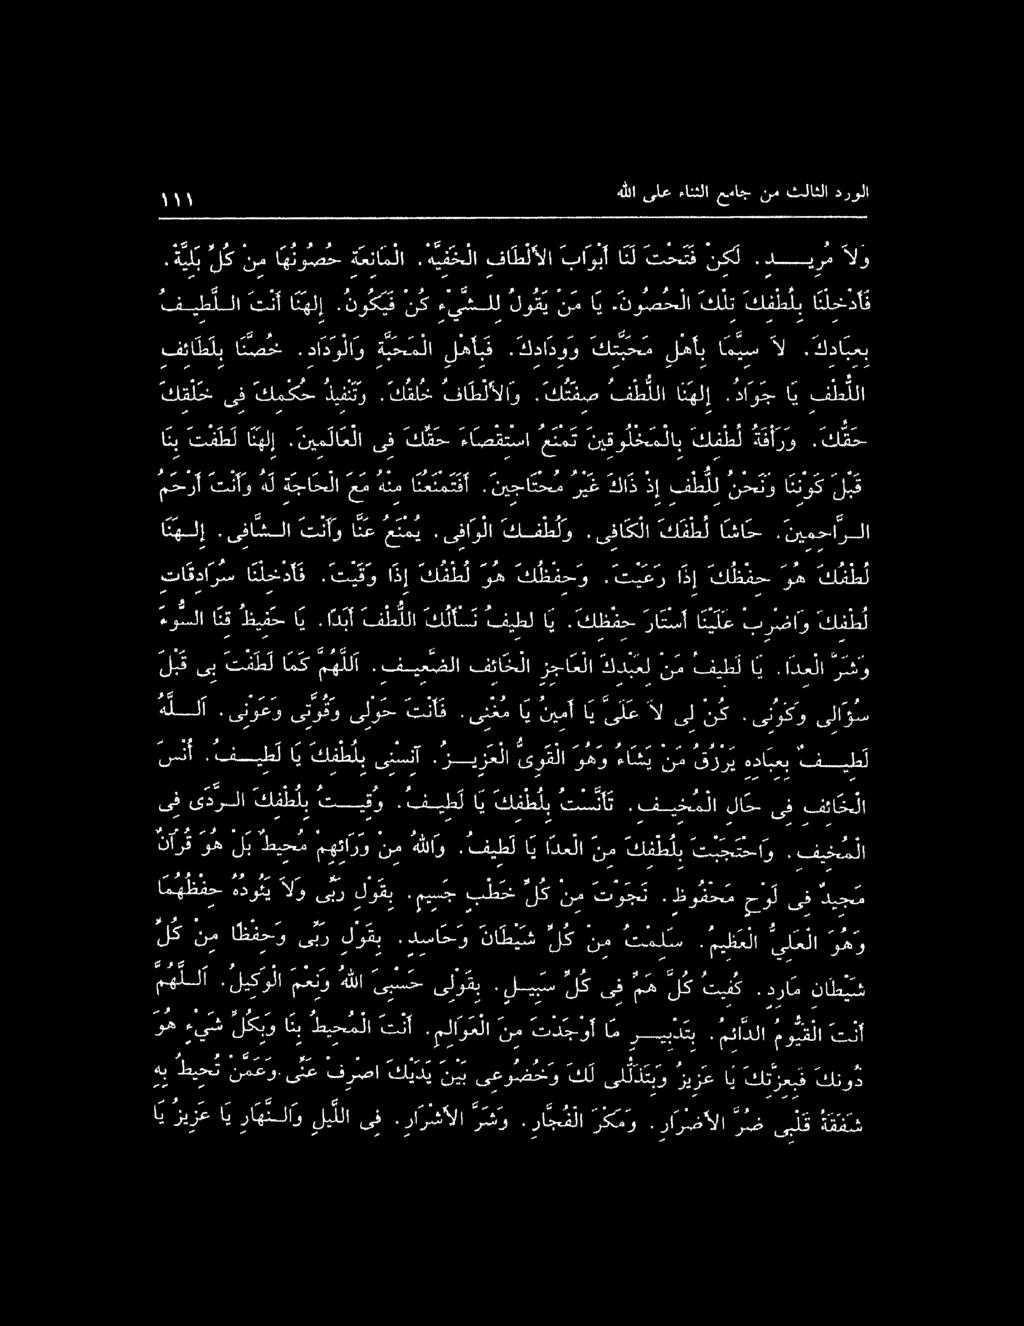 الورد الثالث من جامع الثناء على الله ١١١
وَلاَ مُرِيــدٍ. لَكِنْ فَتَحْتَ لَنَا أَبْوَابَ الأَلْطَافِ الْخَفِيَّهْ. الْمَانِعَةِ حُصُونُهَا مِنْ كُلِّ بَلِيَّةْ.
فَأَدْخِلْنَا بِلُطْفِكَ تِلْكَ الْحُصُونَ. يَا مَنْ يَقُولُ لِلــشَّيْءِ كُنْ فَيَكُونُ. إِلهَنَا أَنْتَ الــلَّطِيــفُ
بِعِبَادِكَ. لاَ سِيَّمَا بِأَهْلِ مَحَبَّتِكَ وَوِدَادِكَ. فَبِأَهْلِ الْمَحَبَّةِ وَالْوِدَادِ. خُصَّنَا بِلَطَائِفِ
اللُّطْفِ يَا جَوَادُ. إِلهَنَا اللُّطْفُ صِفَتُكَ. وَالأَلْطَافُ خُلُقُكَ. وَتَنْفِيذُ حُكْمِكَ فِى خَلْقِكَ
حَقُّكَ. وَرَأْفَةُ لُطْفِكَ بِالْمَخْلُوقِينَ تَمْنَعُ اسْتِقْصَاءَ حَقِّكَ فِى الْعَالَمِينَ. إِلهَنَا لَطَفْتَ بِنَا
قَبْلَ كَوْنِنَا وَنَحْنُ لِلُّطْفِ إِذْ ذَاكَ غَيْرُ مُحْتَاجِينَ. أَفَتَمْنَعُنَا مِنْهُ مَعَ الْحَاجَةِ لَهُ وَأَنْتَ أَرْحَمُ
الــرَّاحِمِينَ. حَاشَا لُطْفَكَ الْكَافِى. وَلُطْفــكَ الْوَافِى. يُمْنَعُ عَنَّا وَأَنْتَ الــشَّافِى. إِلــهَنَا
لُطْفُكَ هُوَ حِفْظُكَ إِذَا رَعَيْتَ. وَحِفْظُكَ هُوَ لُطْفُكَ إِذَا وَقَيْتَ. فَأَدْخِلْنَا سُرَادِقَاتِ
لُطْفِكَ وَاضْرِبْ عَلَيْنَا أَسْتَارَ حِفْظِكَ. يَا لَطِيفُ نَسْأَلُكَ اللُّطْفَ أَبَدًا. يَا حَفِيظُ قِنَا السُّوءَ
وَشَرَّ الْعِدَا. يَا لَطِيفُ مَنْ لِعَبْدِكَ الْعَاجِزِ الْخَائِفِ الضَّعِيــفِ. اَللَّهُمَّ كَمَا لَطَفْتَ بِى قَبْلَ
سُؤَالِى وَكَوْنِى. كُنْ لِى لاَ عَلَىَّ يَا أَمِينُ يَا مُغْنِى. فَأَنْتَ حَوْلِى وَقُوَّتِى وَعَوْنِى. اَلــلَّهُ
لَطِيــفٌ بِعِبَادِهِ يَرْزُقُ مَنْ يَشَاءُ وَهُوَ الْقَوِىُّ الْعَزِيــزُ. آنِسْنِى بِلُطْفِكَ يَا لَطِيــفُ. أُنْسَ
الْخَائِفِ فِى حَالِ الْمُخِيــفِ. تَأَنَّسْتُ بِلُطْفِكَ يَا لَطِيــفُ. وُقِيــتُ بِلُطْفِكَ الــرَّدَى فِى
الْمُخِيفِ. وَاحْتَجَبْتُ بِلُطْفِكَ مِنَ الْعِدَا يَا لَطِيفُ. وَاللهُ مِنْ وَرَائِهِمْ مُحِيطٌ بَلْ هُوَ قُرْآنٌ
مَجِيدٌ فِى لَوْحٍ مَحْفُوظٍ. نَجَوْتُ مِنْ كُلِّ خَطْبٍ جَسِيمٍ. بِقَوْلِ رَبِّى وَلاَ يَئُودُهُ حِفْظُهُمَا
وَهُوَ الْعَلِيُّ الْعَظِيمُ. سَلِمْتُ مِنْ كُلِّ شَيْطَانٍ وَحَاسِدٍ. بِقَوْلِ رَبِّى وَحِفْظًا مِنْ كُلِّ
شَيْطَانٍ مَارِدٍ. كُفِيتُ كُلَّ هَمٍّ فِى كُلِّ سَبِيــلٍ. بِقَوْلِى حَسْبِىَ اللهُ وَنِعْمَ الْوَكِيلُ. اَلــلَّهُمَّ
أَنْتَ الْقَيُّومُ الدَّائِمُ. بِتَدْبِيــرِ مَا أَوْجَدْتَ مِنَ الْعَوَالِمِ. أَنْتَ الْمُحِيطُ بِنَا وَبِكُلِّ شَيْءٍ هُوَ
دُونَكَ فَبِعِزَّتِكَ يَا عَزِيزُ وَبِتَذَلُّلِى لَكَ وَخُضُوعِى بَيْنَ يَدَيْكَ اصْرِفْ عَنِّى. وَعَمَّنْ تُحِيطُ بِهِ
شَفَقَةُ قَلْبِى ضُرَّ الأَضْرَارِ. وَمَكْرَ الْفُجَّارِ. وَشَرَّ الأَشْرَارِ. فِى اللَّيْلِ وَالــنَّهَارِ يَا عَزِيزُ يَا